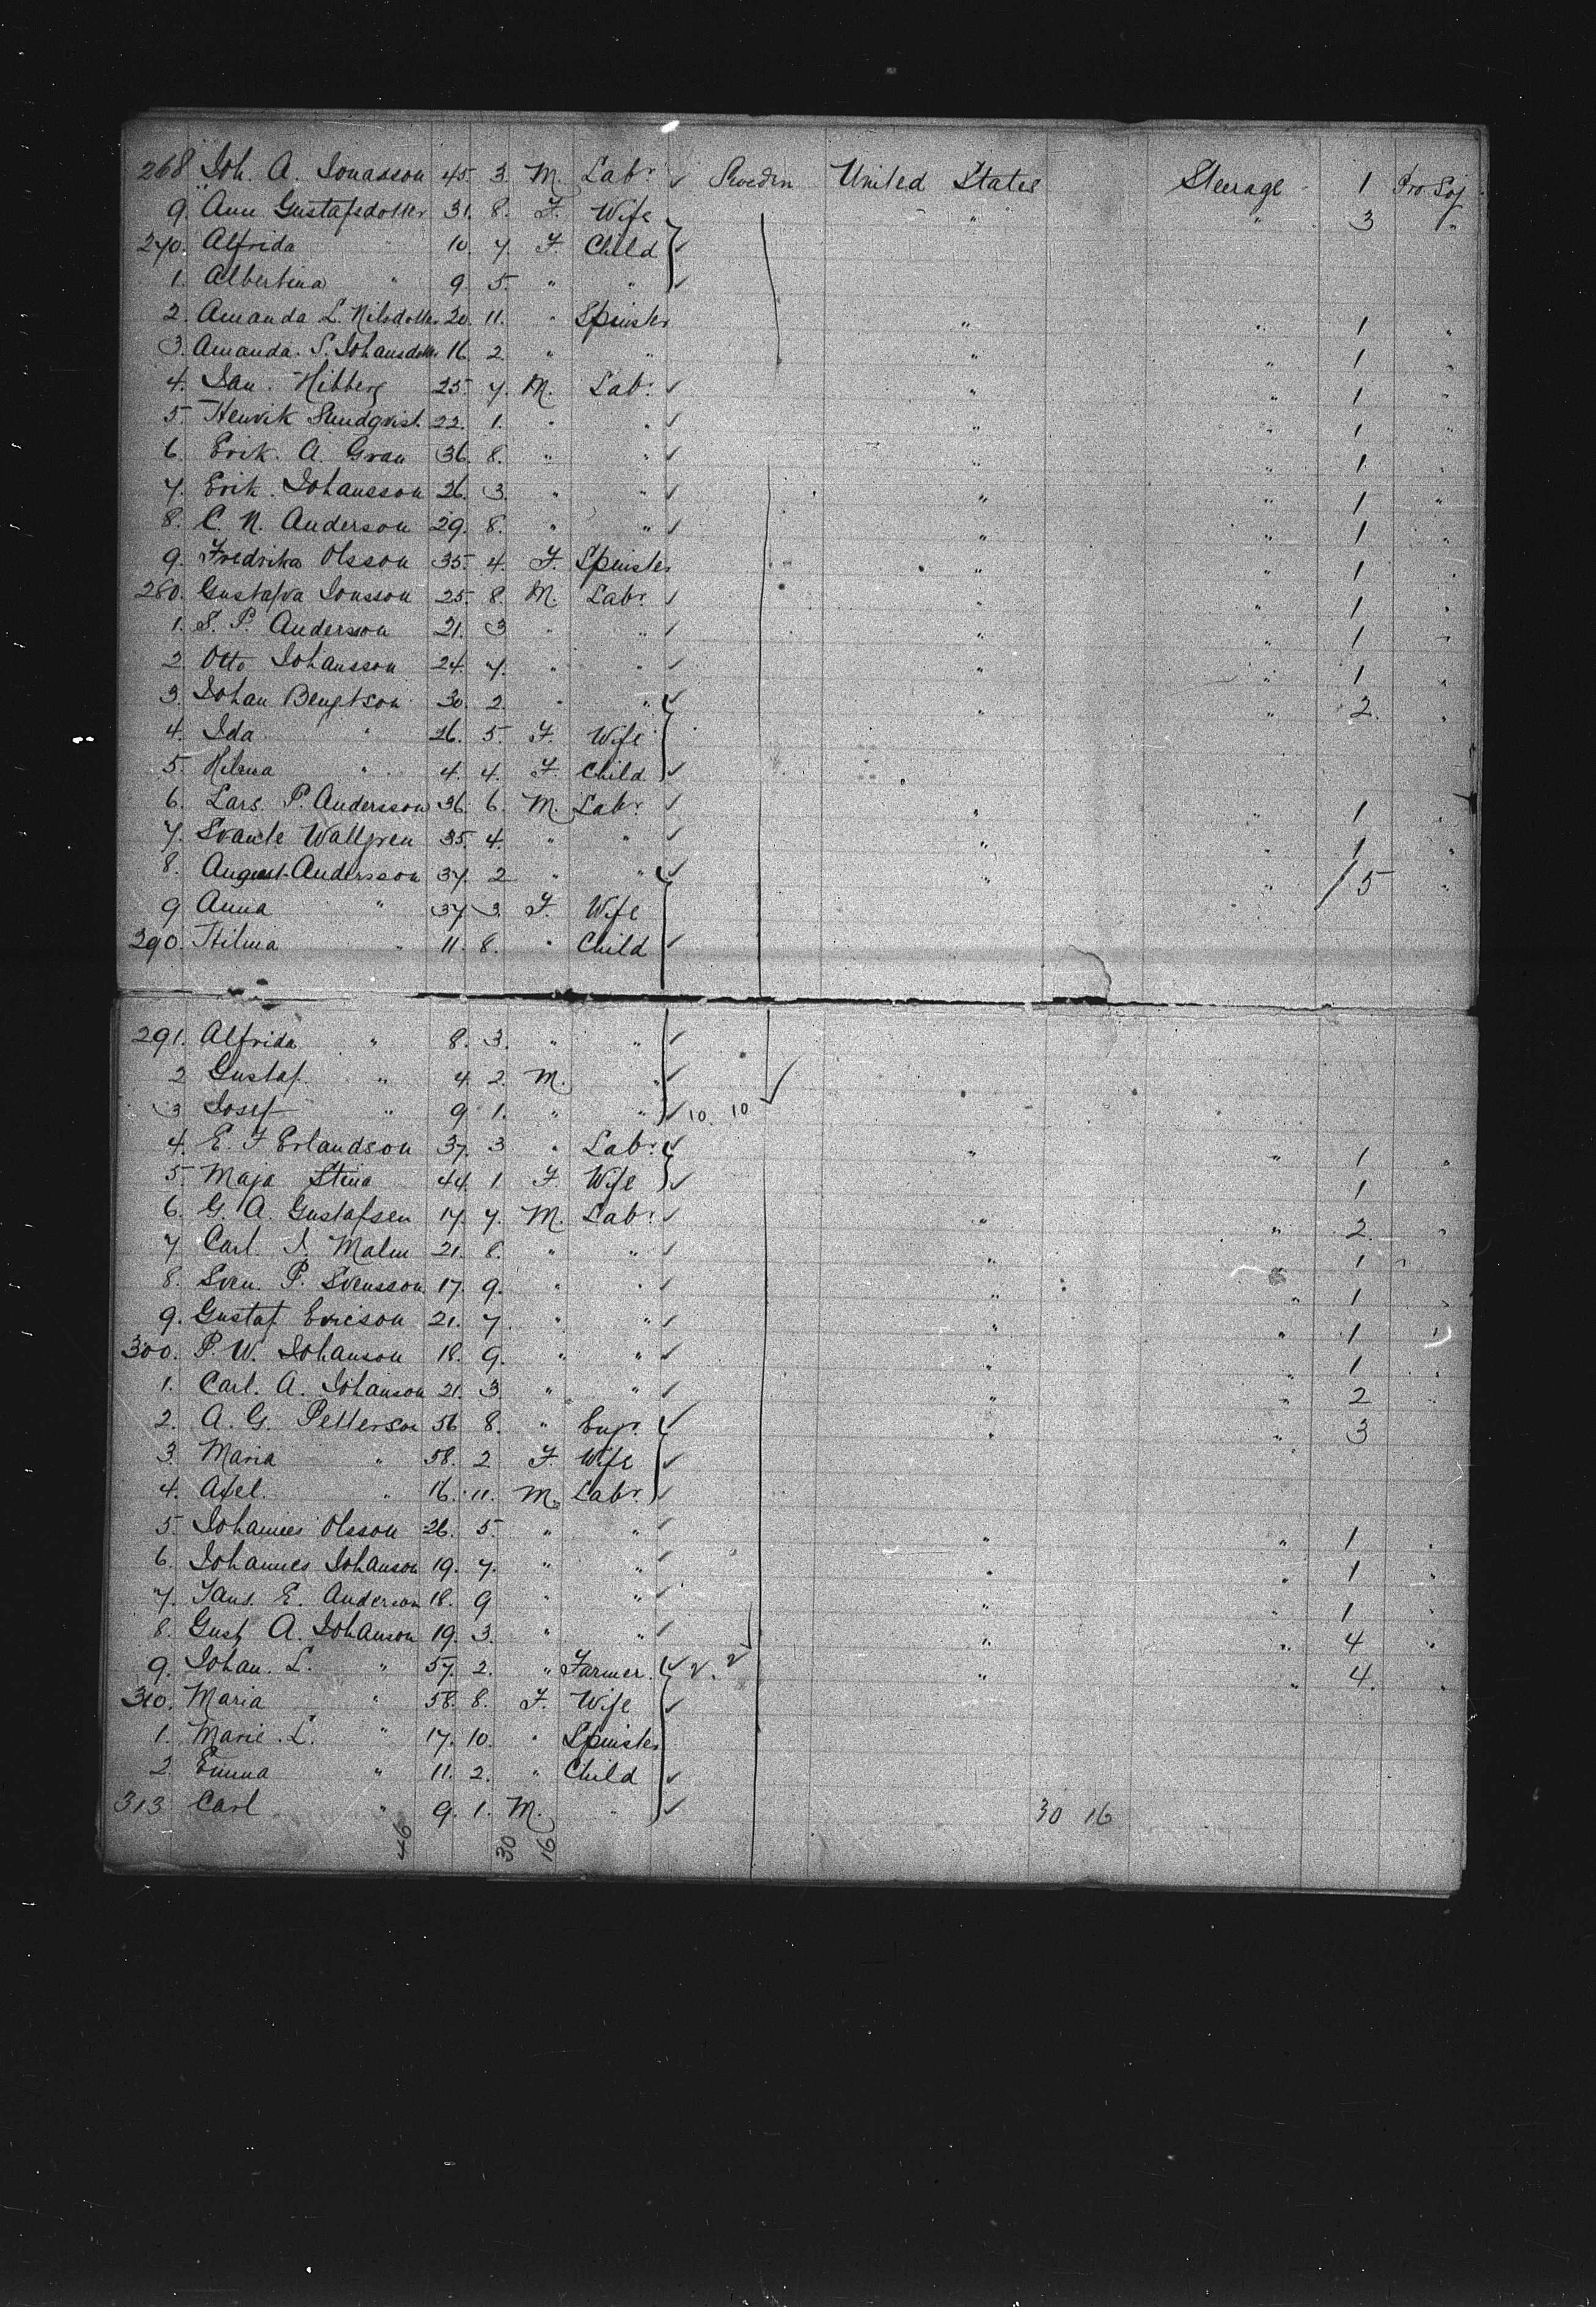 268 Joh. A. Jonasson 45. 3. M. Labr. Sweden United States Steerage 1 Pro Soj
9. Ann Gustafsdotter 31. 8. F. Wife " " 3 "
270. Alfrida 10. 7. F. Child
1. Albertina " 9. 5. " "
2. Amanda L. Nilsdotter 20. 11. " Spinster " " 1 "
3. Amanda. S. Johansdotter 16. 2. " " " " 1 "
4. Jan. Hibberg 25. 7. M. Labr. " " 1 "
5. Henrik Sundqvist. 22. 1. " " " " 1 "
6. Erik. A. Gran 36. 8. " " " " 1 "
7. Erik. Johansson 26. 3. " " " " 1 "
8. C. N. Anderson 29. 8. " " " " 1 "
9. Fredrika Olsson 35. 4. F. Spinster " " 1 "
280. Gustafva Jonsson 25. 8. M. Labr. " " 1 "
1. S. P. Anderson 21. 3 " " " " 1 "
2. Otto Johansson 24. 7. " " " " 1 "
3. Johan Bengtson 30. 2. " " " " 2. "
4. Ida " 26. 5. F. Wife
5. Hilma " 4. 4. F. Child "
6. Lars. P. Andersson 36. 6. M. Labr. " " 1 "
7. Svante Wallgren 35. 4. " " " " 1 "
8. August Andersson 37. 2 " " " " 5 "
9 Anna " 37 3. F. Wife
290. Hilma " 11. 8. " Child
291. Alfrida " 8. 3. " "
2 Gustaf. " 4. 2. M. "
3 Josef " 9 1. " " 10. 10
4. E. F Erlandson 37. 3 " Labr. " " 1 "
5. Maja Stina 44. 1 F. Wife 1
6. G. A. Gustafsen 17. 7. M. Labr. " " 2. "
7 Carl. J. Malm 21. 8. " " " 1 "
8. Sven. P. Svensson. 17. 9. " " " " 1 "
9. Gustaf. Ericson 21. 7. " " " " 1 "
300. P. W. Johanson 18. 9. " " " 1 "
1. Carl. A. Johanson 21. 3. " " " " 2 "
2. A. G. Petterson 56 8. " Engr. " " 3
3. Maria " 58. 2 F. Wife
4. Axel. " 16. 11. M. Labr.
5 Johannes Olsson 26. 5. " " " " 1 "
6. Johannes Johanson 19. 7. " " " " 1 "
7. Jans. E. Anderson 18. 9 " " " " 1 "
8. Gust A. Johanson 19. 3. " " " " 4 "
9. Johan. L. " 57. 2. " Farmer. 2. 2 " " 4. "
310. Maria " 58. 8. F. Wife
1. Marie. L. " 17. 10. " Spinster
2. Emma " 11. 2. " Child
313 Carl " 9. 1. M. " 30 16
46 30 16